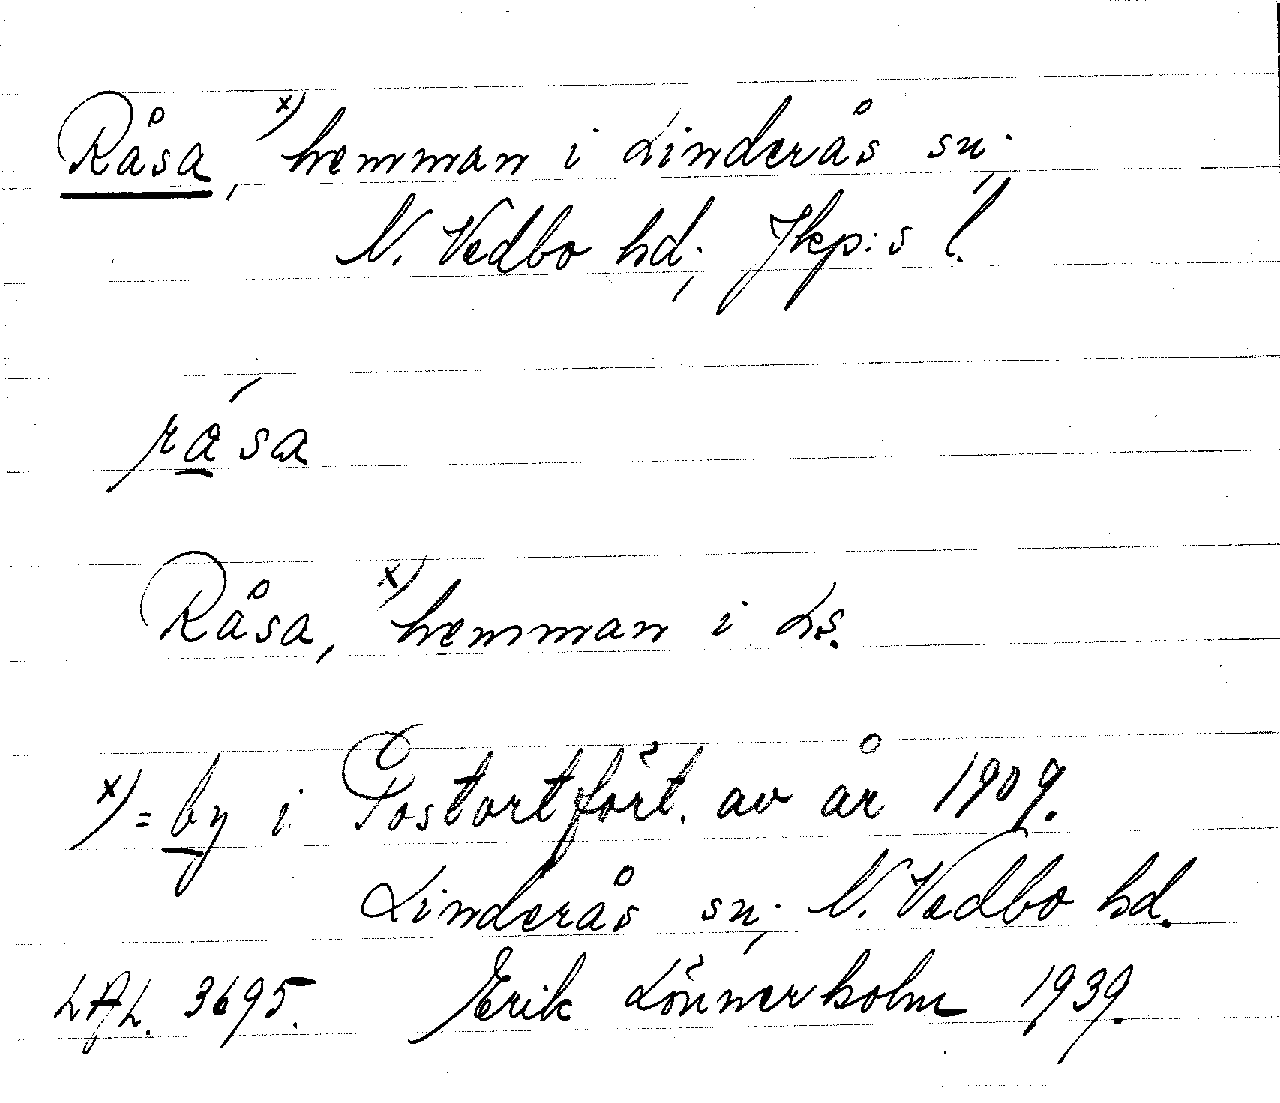 Råsa, x) hemman i Linderås sn.,
N. Vedbo hd., Jkp:s l.
rǻsa
Råsa, x) hemman i Ls.
x) = by i Postortfört. av år 1909.
Linderås sn., N. Vedbo hd.
LAL. 3695. Erik Lönnerholm 1939.